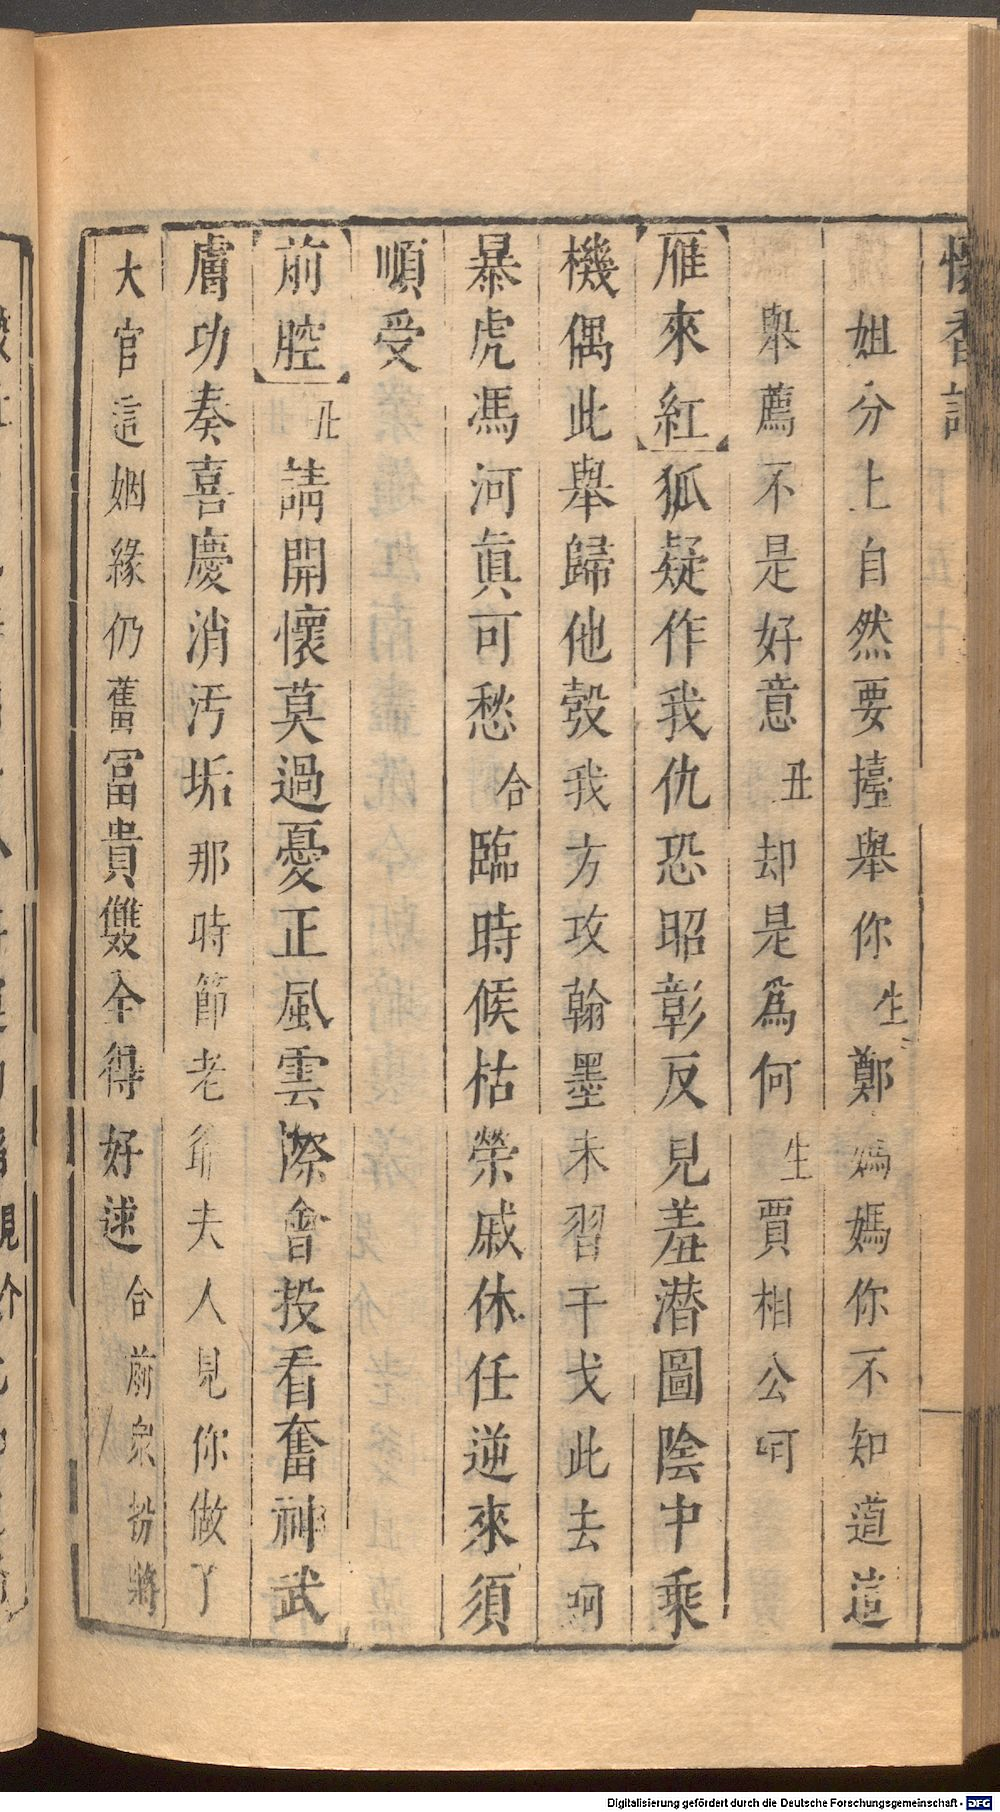 懷香記
姐分上自然要擡舉你生鄭媽媽你不知道這
舉薦不是好意丑却是爲何生賈相公呵
【雁來紅】狐疑作我仇恐昭彰反見羞潛圖陰中乘
機偶此舉歸他彀我方攻翰墨未習干戈此去呵
暴虎馮河眞可愁合臨時候枯榮戚休任逆來須
順受
【前腔】丑請開懷莫過憂正風雲際會投看奮神武
膚功奏喜慶消汚垢那時節老爺夫人見你做了
大官這姻緣仍舊冨貴雙全得好逑合前衆扮將
Digitalisierung gefördert durch die Deutsche Forschungsgemeinschaft - DFG